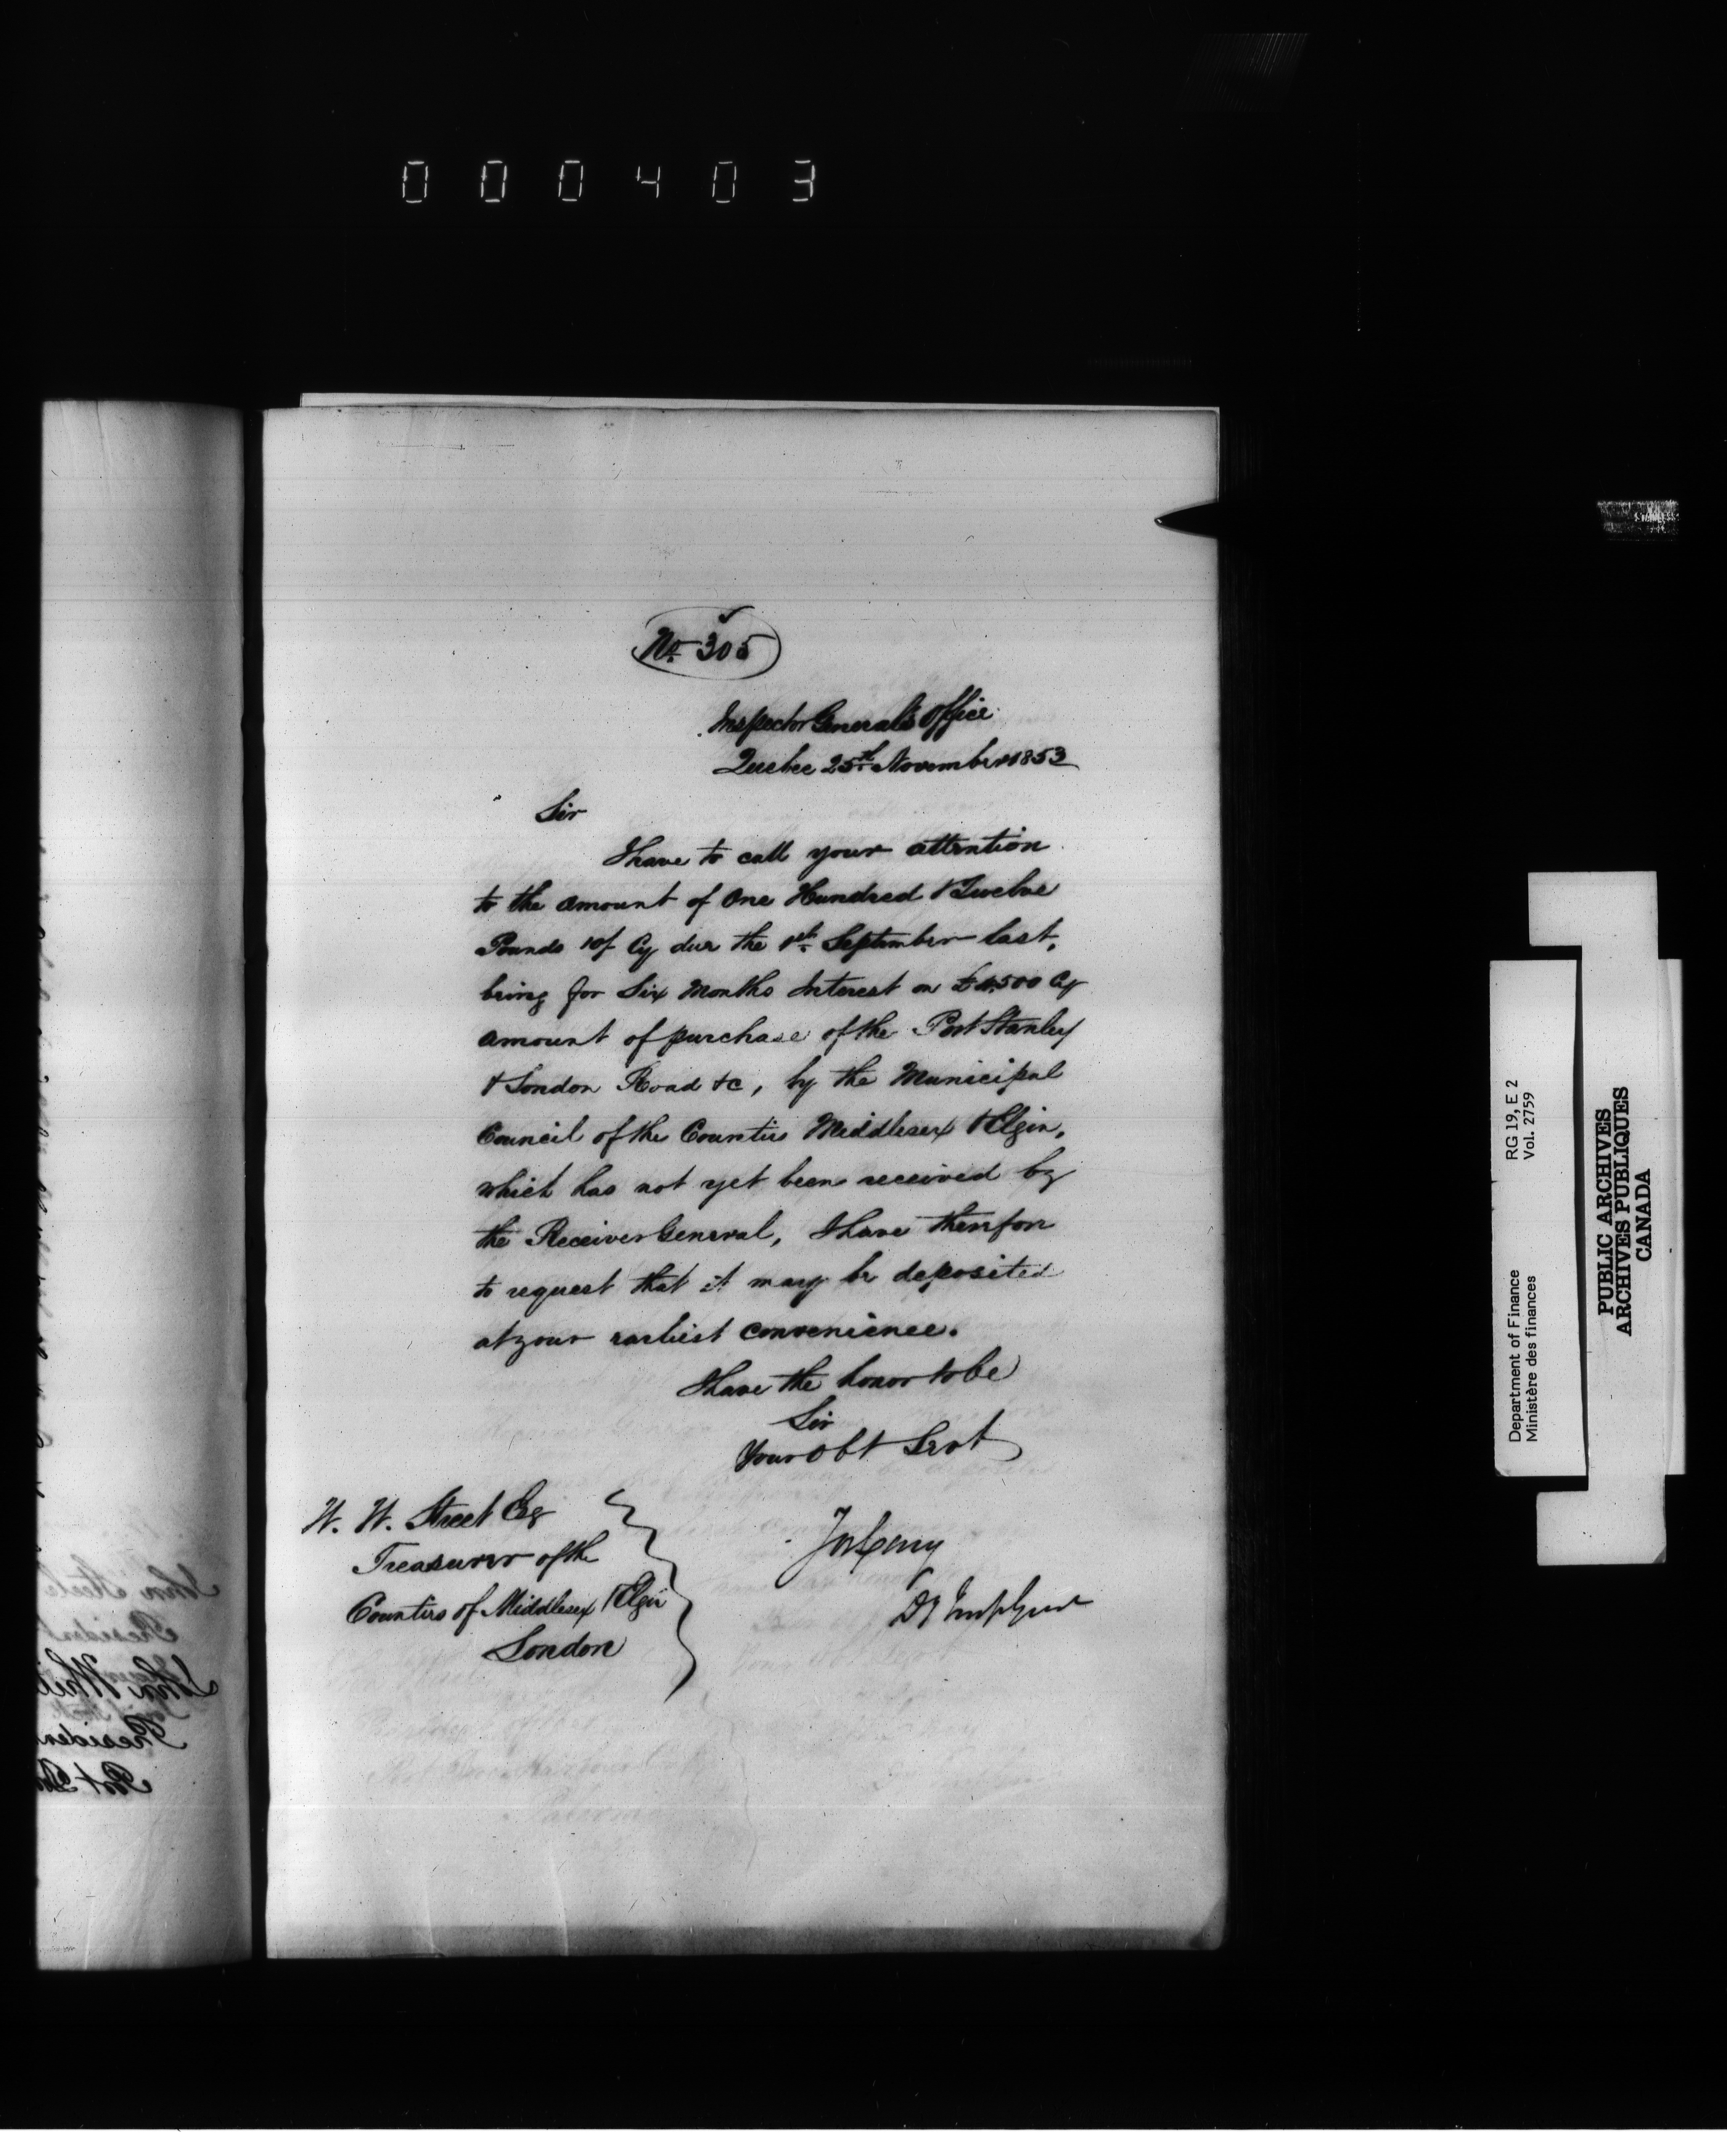 000403
No. 305
Inspector General's Office
Quebec 25th November 1853
Sir
I have to call your attention
to the amount of One Hundred & Twelve
Pounds 10/ Cy due the 1st September last,
being for Six Months Interest on £4,500 Cy
amount of purchase of the Port Stanley
& London Road &c, by the Municipal
Council of the Counties Middlesex & Elgin,
which has not yet been received by
the Receiver General, I have therefore
to request that it may be deposited
at your earliest convenience.
I have the honor to be
Sir
Your Obt Servt
W. W. Street Esq
Treasurer of the
Counties of Middlesex & Elgin
London
Jos Cary
Dy Insp Genl
RG 19, E 2
Vol. 2759
Department of Finance
Ministère des finances
PUBLIC ARCHIVES
ARCHIVES PUBLIQUES
CANADA